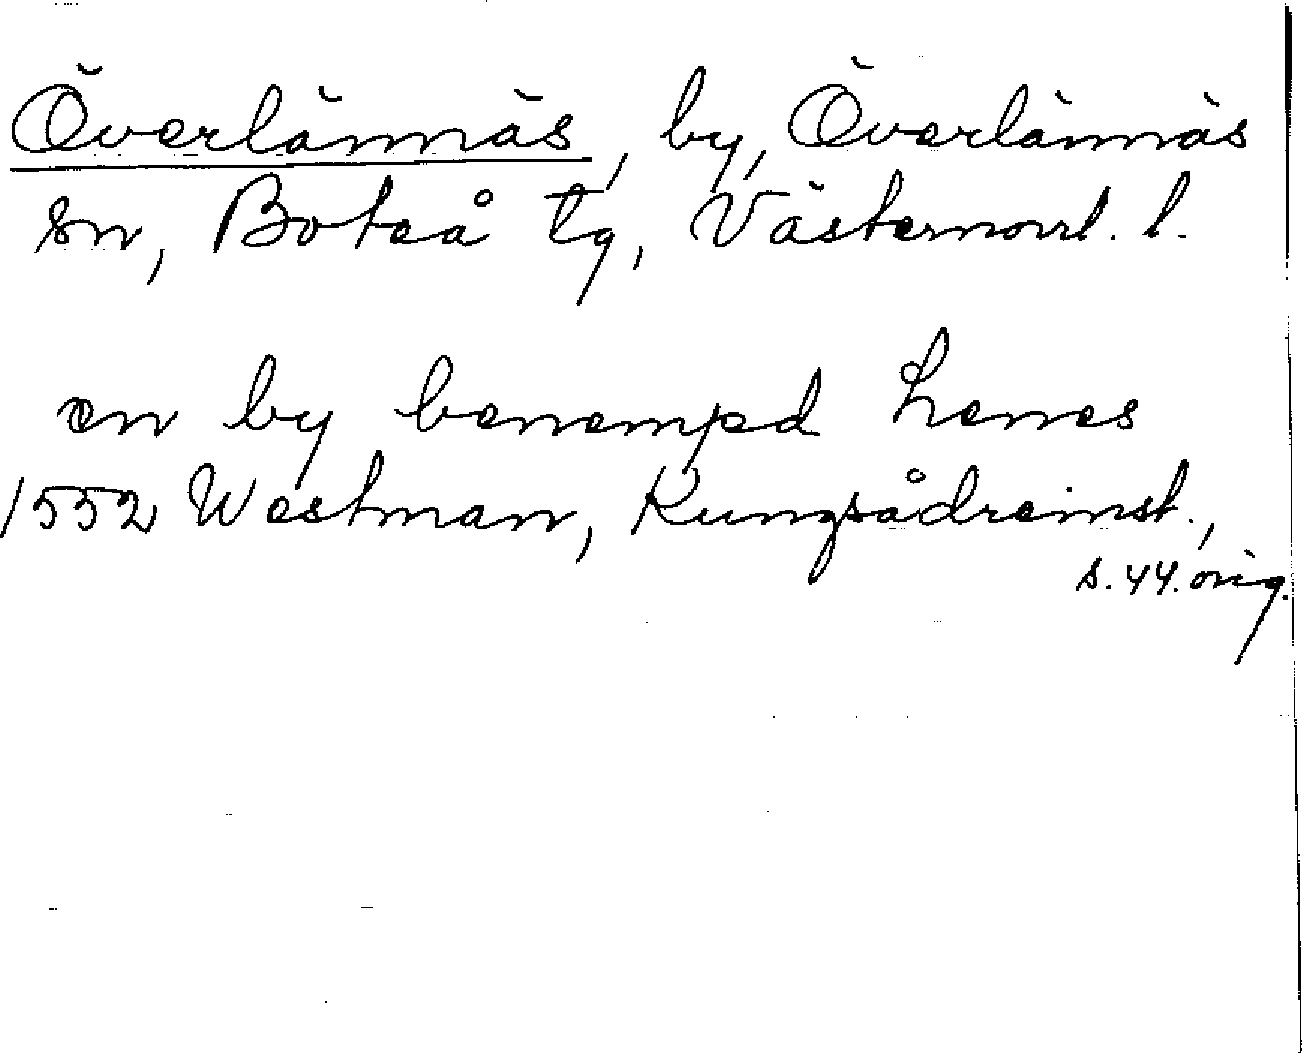 Överlännäs, by, Överlännäs
sn, Boteå tg, Västernorrl. l.
en by benempd Lenes
1552 Westman, Kungsådreinst.,
s. 44. orig.